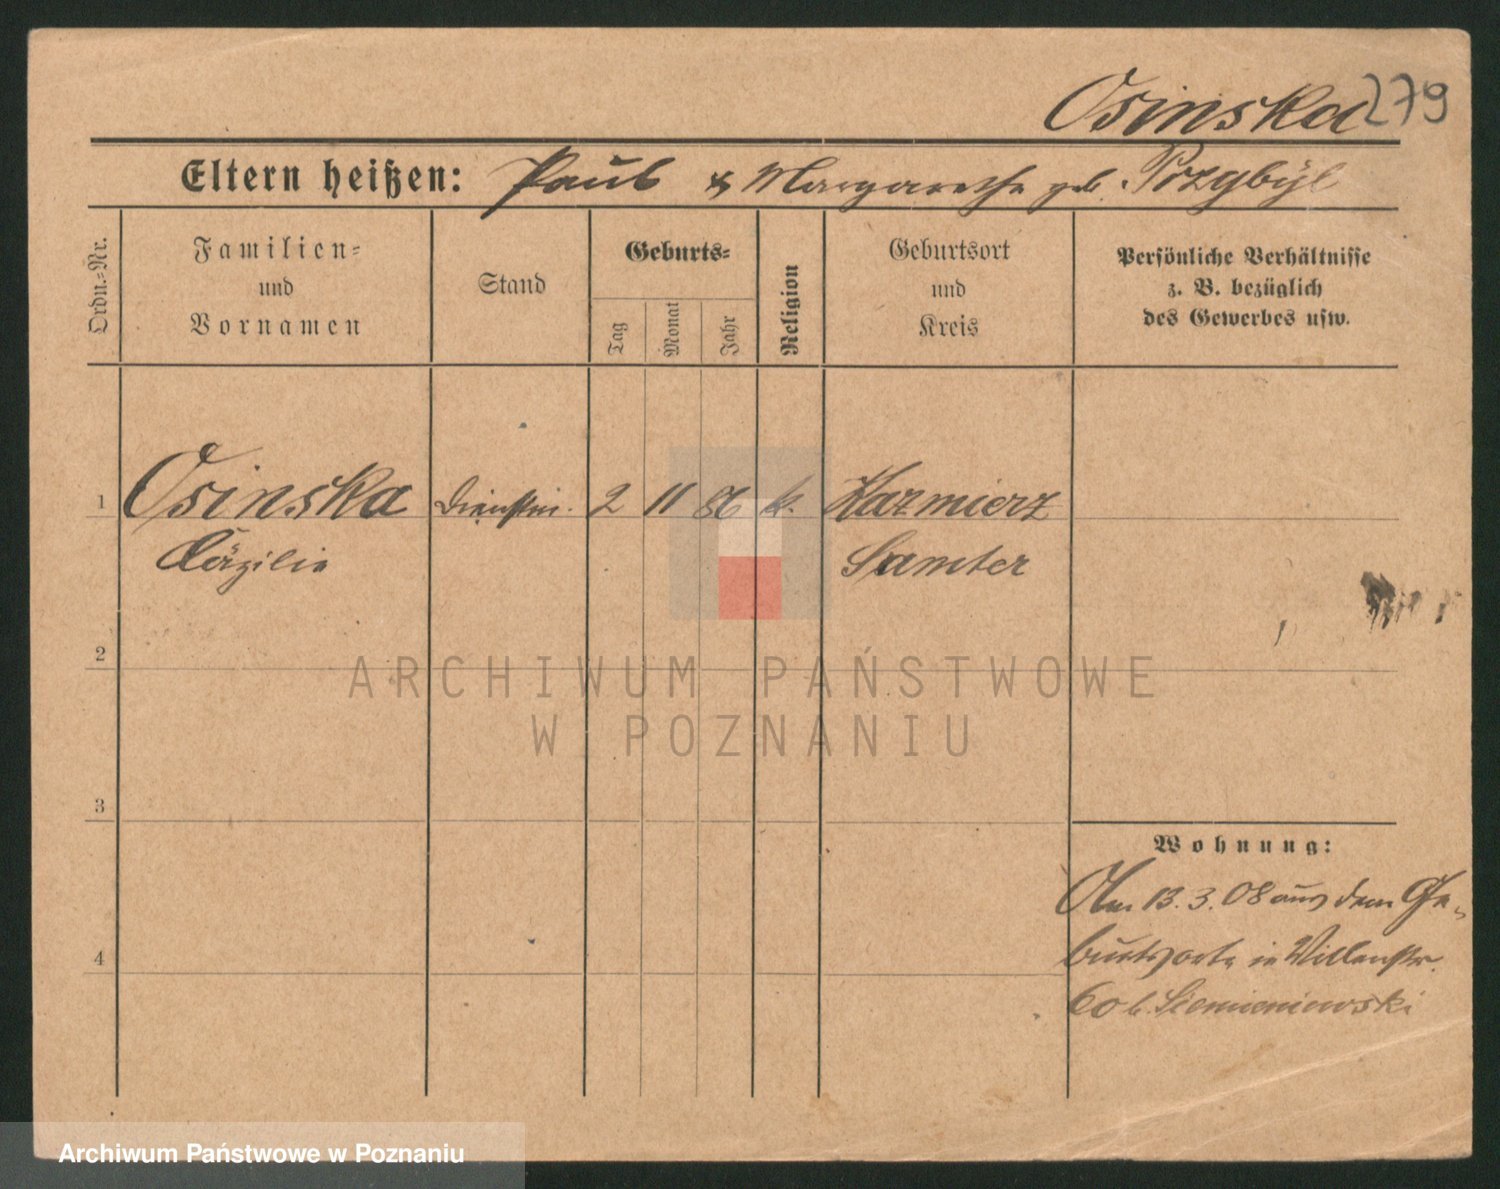 Osinska 279
Eltern heißen: Paul & Margarethe geb. Przybyl
Ordn.-Nr.
Familien-
und
Vornamen
Stand
Geburts-
Tag
Monat
Jahr
Religion
Geburtsort
und
Kreis
Persönliche Verhältnisse
z. B. bezüglich
des Gewerbes usw.
1 Osinska Dienstin. 2 11 86 k. Kazmierz
Cäzilie Samter
2
ARCHIWUM PAŃSTWOWE
W POZNANIU
3
Wohnung:
Am 13.3.08 aus dem Ge-
burtsorte in Villenstr.
6 b. Siemieniewski
4
Archiwum Państwowe w Poznaniu